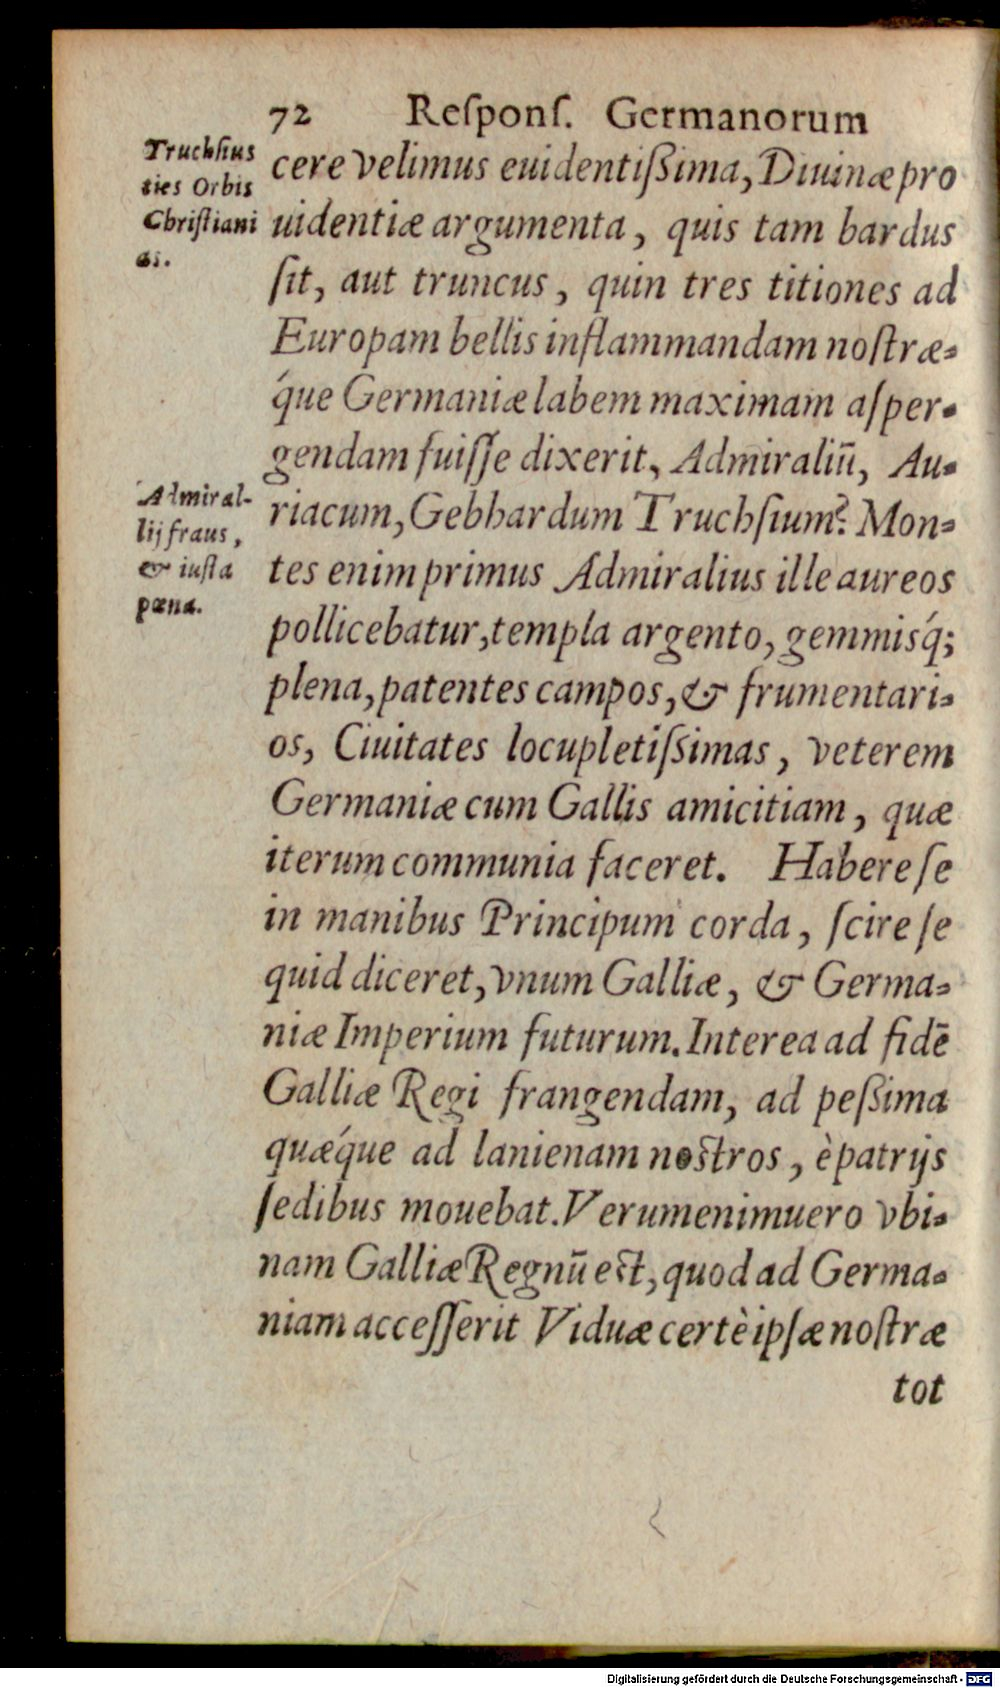 72 Reſponſ. Germanorum
Truchſius
ties Orbis
Chriſtiani
as.
cere velimus euidentißima, Diuinæ pro
uidentiæ argumenta, quis tam bardus
ſit, aut truncus, quin tres titiones ad
Europam bellis inflammandam noſtræ-
q́ue Germaniæ labem maximam aſper-
gendam fuiſſe dixerit, Admiraliū, Au-
riacum, Gebhardum Truchſium? Mon-
Admiral-
lij fraus,
& iuſta
pœna.
tes enim primus Admiralius ille aureos
pollicebatur, templa argento, gemmisq́;
plena, patentes campos, & frumentari-
os, Ciuitates locupletiſſimas, veterem
Germaniæ cum Gallis amicitiam, quæ
iterum communia faceret. Habere ſe
in manibus Principum corda, ſcire ſe
quid diceret, vnum Galliæ, & Germa-
niæ Imperium futurum. Interea ad fidē
Galliæ Regi frangendam, ad peßima
quæq́ue ad lanienam nostros, è patrijs
ſedibus mouebat. Verumenimuero vbi-
nam Galliæ Regnū est, quod ad Germa-
niam acceſſerit Viduæ certè ipſæ noſtræ
tot
Digitalisierung gefördert durch die Deutsche Forschungsgemeinschaft - DFG